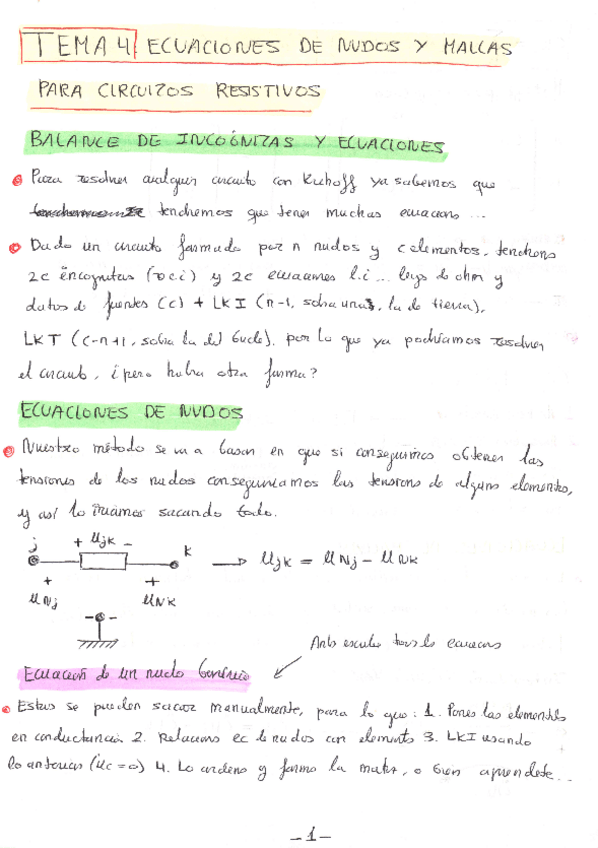 TEMA 4 ECUACIONES DE NUDOS Y MALLAS
PARA CIRCUITOS RESISTIVOS
BALANCE DE INCOGNITAS Y ECUACIONES
Para resolver cualquier circuito con Kirchoff ya sabemos que
tendremos que tener muchas ecuacions ...
Dado un circuito formado por n nudos y c elementos, tendrems
2c incognitas (v e i) y 2c ecuaciones l.i ... leyes de ohm y
datos de fuentes (c) + LKI (n-1, sobra una, la de tierra),
LKT (c-n+1, sobra la del bucle), por lo que ya podríamos resolver
el circuito, ¿pero habra otra forma?
ECUACIONES DE NUDOS
Nuestro método se va a basar en que si conseguimos obtener las
tensiones de los nudos conseguiriamos las tensions de algunos elementos,
y así lo iriamos sacando todo.
j + Ujk - k → Ujk = UNj - UNk
+ +
UNj UNk
Ecuación de un nudo Genérico
Estas se pueden sacar manualmente, para lo que: 1. Pones los elementos
en conductancia 2. Relacions ec de nudos con elements 3. LKI usando
lo anterior (ic=0) 4. Lo ordens y formo la matriz, o bien aprendete...
-1-